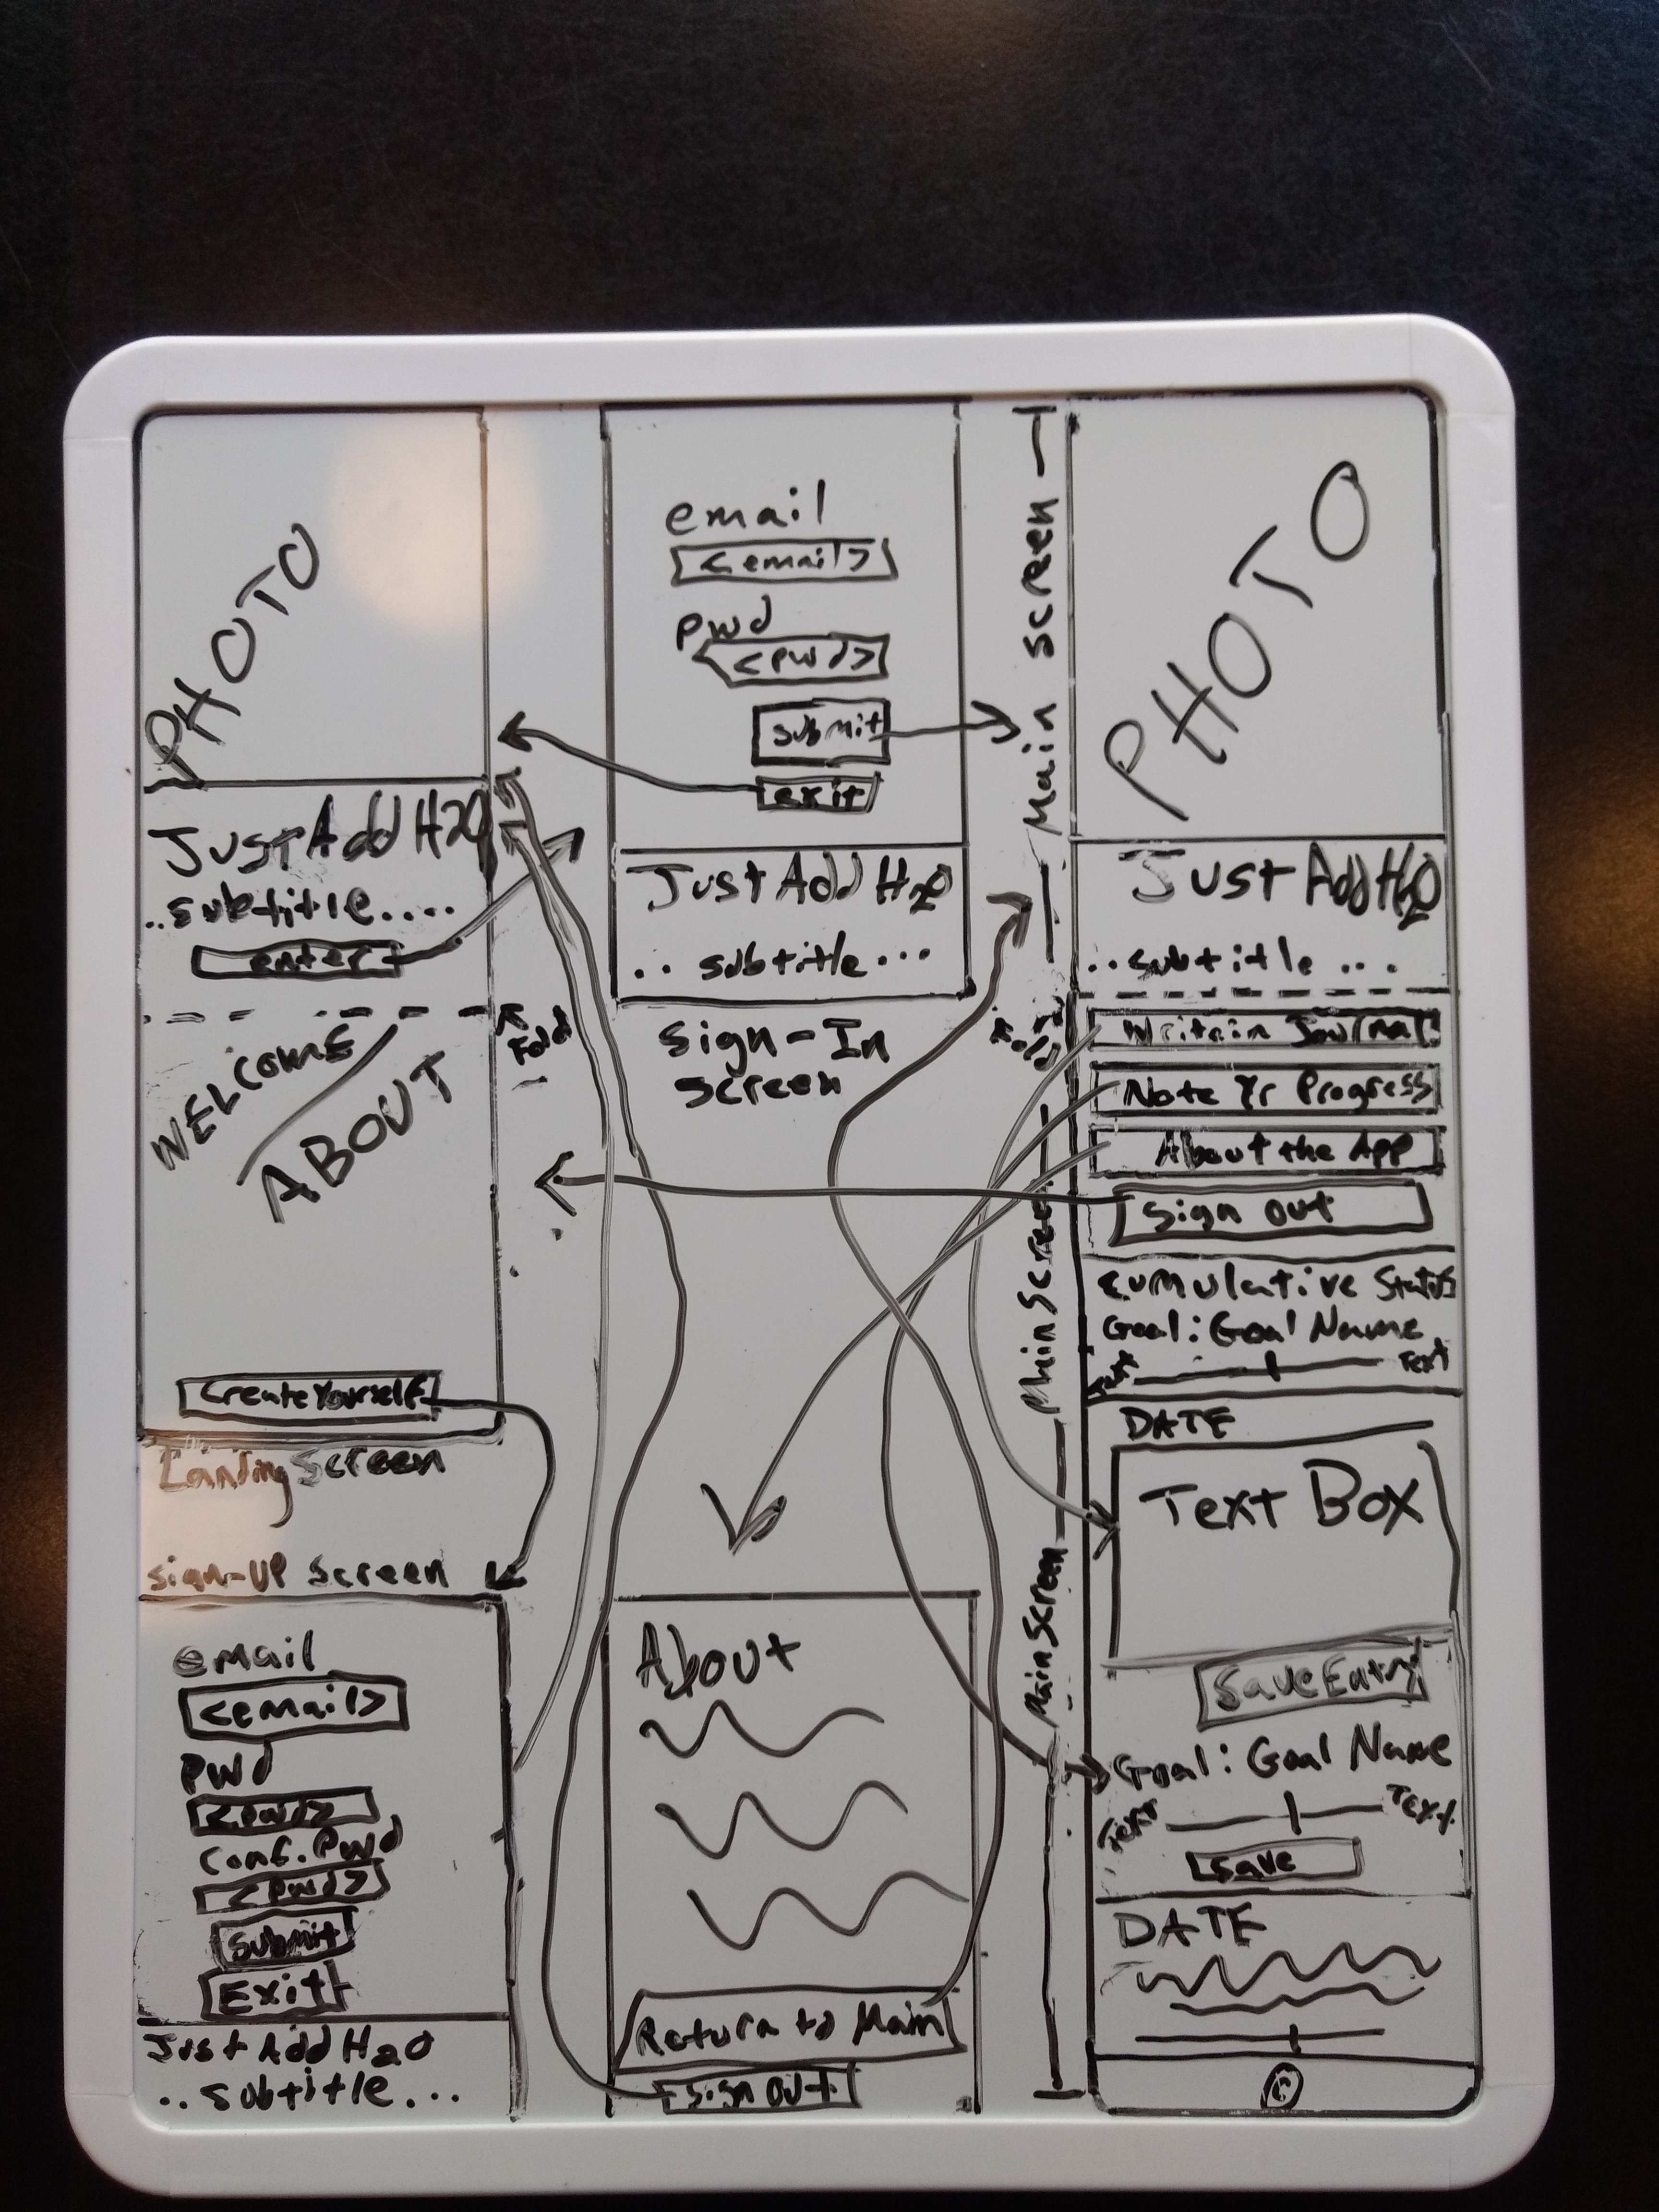 PHOTO
Just Add H2O
..subtitle....
enter
Fold
WELCOME
ABOUT
Create Yourself
Landing Screen
sign-up screen
email
<email>
pwd
<pwd>
conf. pwd
<pwd>
submit
Exit
Just Add H2O
..subtitle...
email
<email>
pwd
<pwd>
submit
exit
Just Add H2O
.. subtitle...
Sign-In
screen
About
Return to Main
sign out
Main screen
Fold
Main Screen
Main Screen
PHOTO
Just Add H2O
..subtitle ...
Write in Journal
Note Yr Progress
About the App
Sign Out
Cumulative Status
Goal: Goal Name
Text Text
DATE
Text Box
Save Entry
Goal: Goal Name
Text Text
save
DATE
©